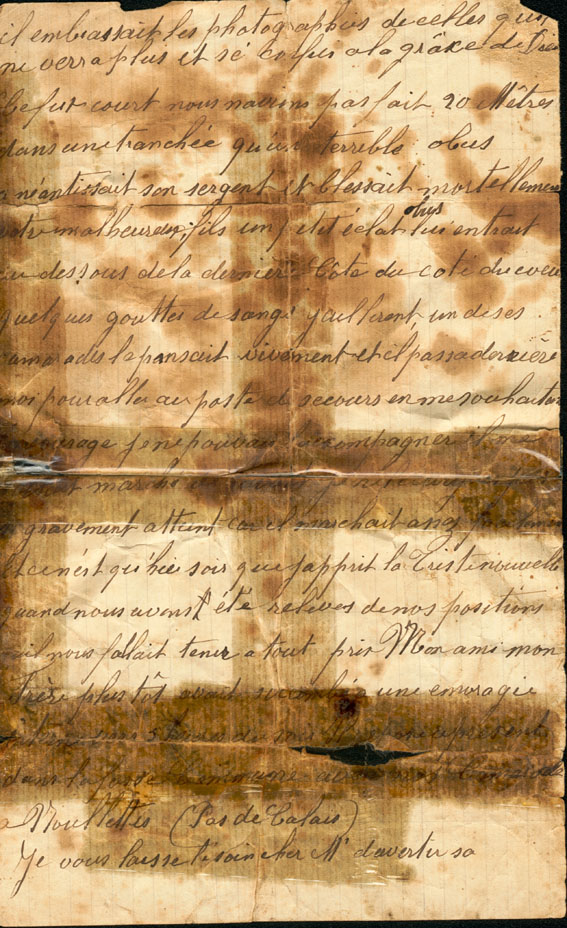 il embrassait les photographies de celles qu'il
ne verra plus et sé corps a la grâke de Dieu
Ce fut court nous navions pas fait 20 Mêtres
dans une tranchée qu'un terrible obus
anéantissait son sergent et blessait mortellement
votre malheureux fils un petit éclat obus lui entrait
au dessous de la dernière Côte du coté du coeur
quelques gouttes de sang jaillirent, un de ses
camarades le pansait vivement et il passa derrière
moi pour aller au poste de secours en me souhaitant
courage je ne pouvais l'accompagner il me
marche
gravement atteint car il marchait assez
Et ce n'ést qu'hier soir que j'apprit la Triste nouvelle
quand nous avons été relevés de nos positions
qu'il nous fallait tener a tout prix Mon ami mon
frère plus tôt avait succombé a une emoragie
interne
dans la fosse Commune
a Noullettes (Pas de Calais)
Je vous laisse le soin cher Mr d'avertir sa